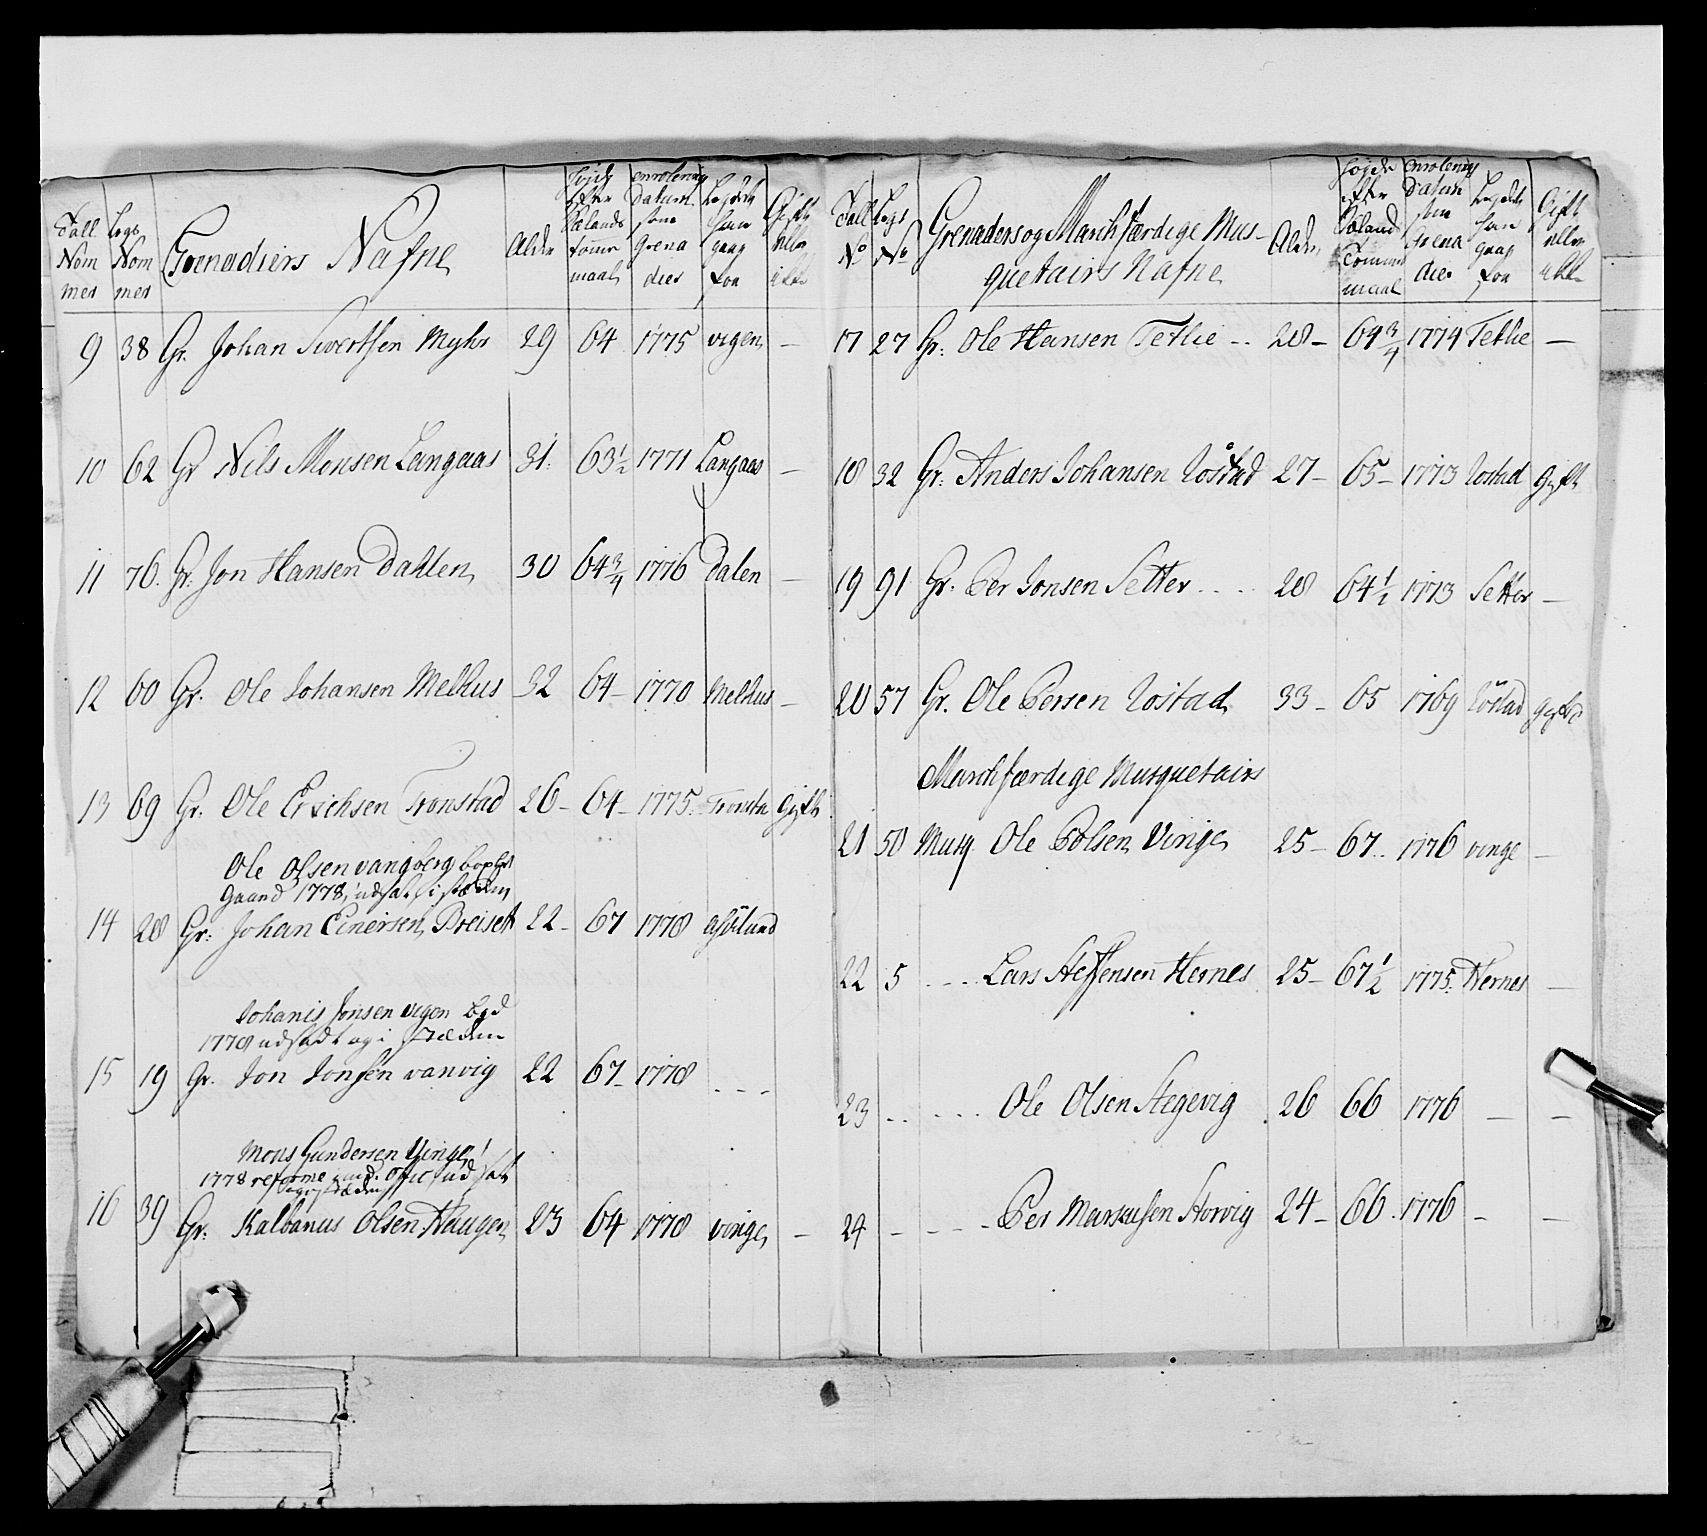 Tall Nom mer | Legs Nom mer | Grenadiers Nafne | Alder | Højde efter Sælands tomme maal | enrolering Datum som Grena dier | Legdets han gaar for | Gift eller ikke
9 38 Gr. Johan Siverthsen Myhr 29 64 1775 vigen —
10 62 Gr Nils Monsen Langaas 31. 63½ 1771 Langaas —
11 76. Gr. Jon Hansen Dahlen, 30 64¾ 1776 Dalen —
12 60 Gr. Ole Johansen Melhus 32 64— 1770 Melhus —
13 69 Gr. Ole Erichsen Tronstad 26— 64— 1775. Tronsta Gift
Ole Olsen vangberg
Gaand 1778, udsat i stæden
14 28 Gr: Johan Einersen Breiset 22— 67 1778
Johanis Jonsen vigen
1778 udsadt og i stæden
15 19 Gr. Jon Jonsen vanvig 22 67— 1778 ---
Mons Gundersen Vinge
1778 reforme
16 39 Gr: Kalbanus Olsen Haugen 23 64 1778 vinge, —
Tall No | Legs No | Grenaders og Marchfærdige Mus-
quetairs Nafne | Alder | Højde efter Sæland Tomme maal | enrolering Datum som Grena dier | Legdets han gaar for | Gift eller ikke
17 27 Gr: Ole Hansen Tetlie -- 28— 64¾ 1774 Tetlie —
18 32 Gr: Anders Johansen Lostad 27— 65— 1773 Lostad Gift
19 91 Gr. Per Jonsen Setter .... 28 64½ 1773 Setter —
20 57 Gr. Ole Persen Lostad 33— 65 1769 Lostad gift
Marchfærdige Musquetairs
21 50 Musq Ole Polsen Vinge 25— 67.. 1776 vinge —
22 5 ---- Lars Steffensen Hernes 25— 67½ 1775. Hernes —
23 -- ---- Ole Olsen Stegevig 26 66 1776 — —
24 - --- Per Marcusen Storvig 24— 66. 1776 — —